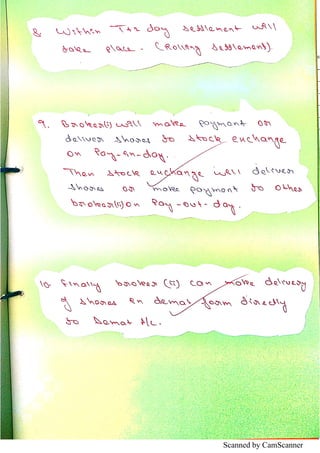 8. Within T+2 day settlement will
take place. (Rolling Settlement).
9. Broker(i) will make payment or
deliver shares to stock exchange
on Pay-in-day.
Then stock exchange will deliver
shares or make payment to other
broker(ii) on Pay-out-day.
10. Finally broker (ii) can make delivery
of shares in demat form directly
to Demat A/c.
Scanned by CamScanner